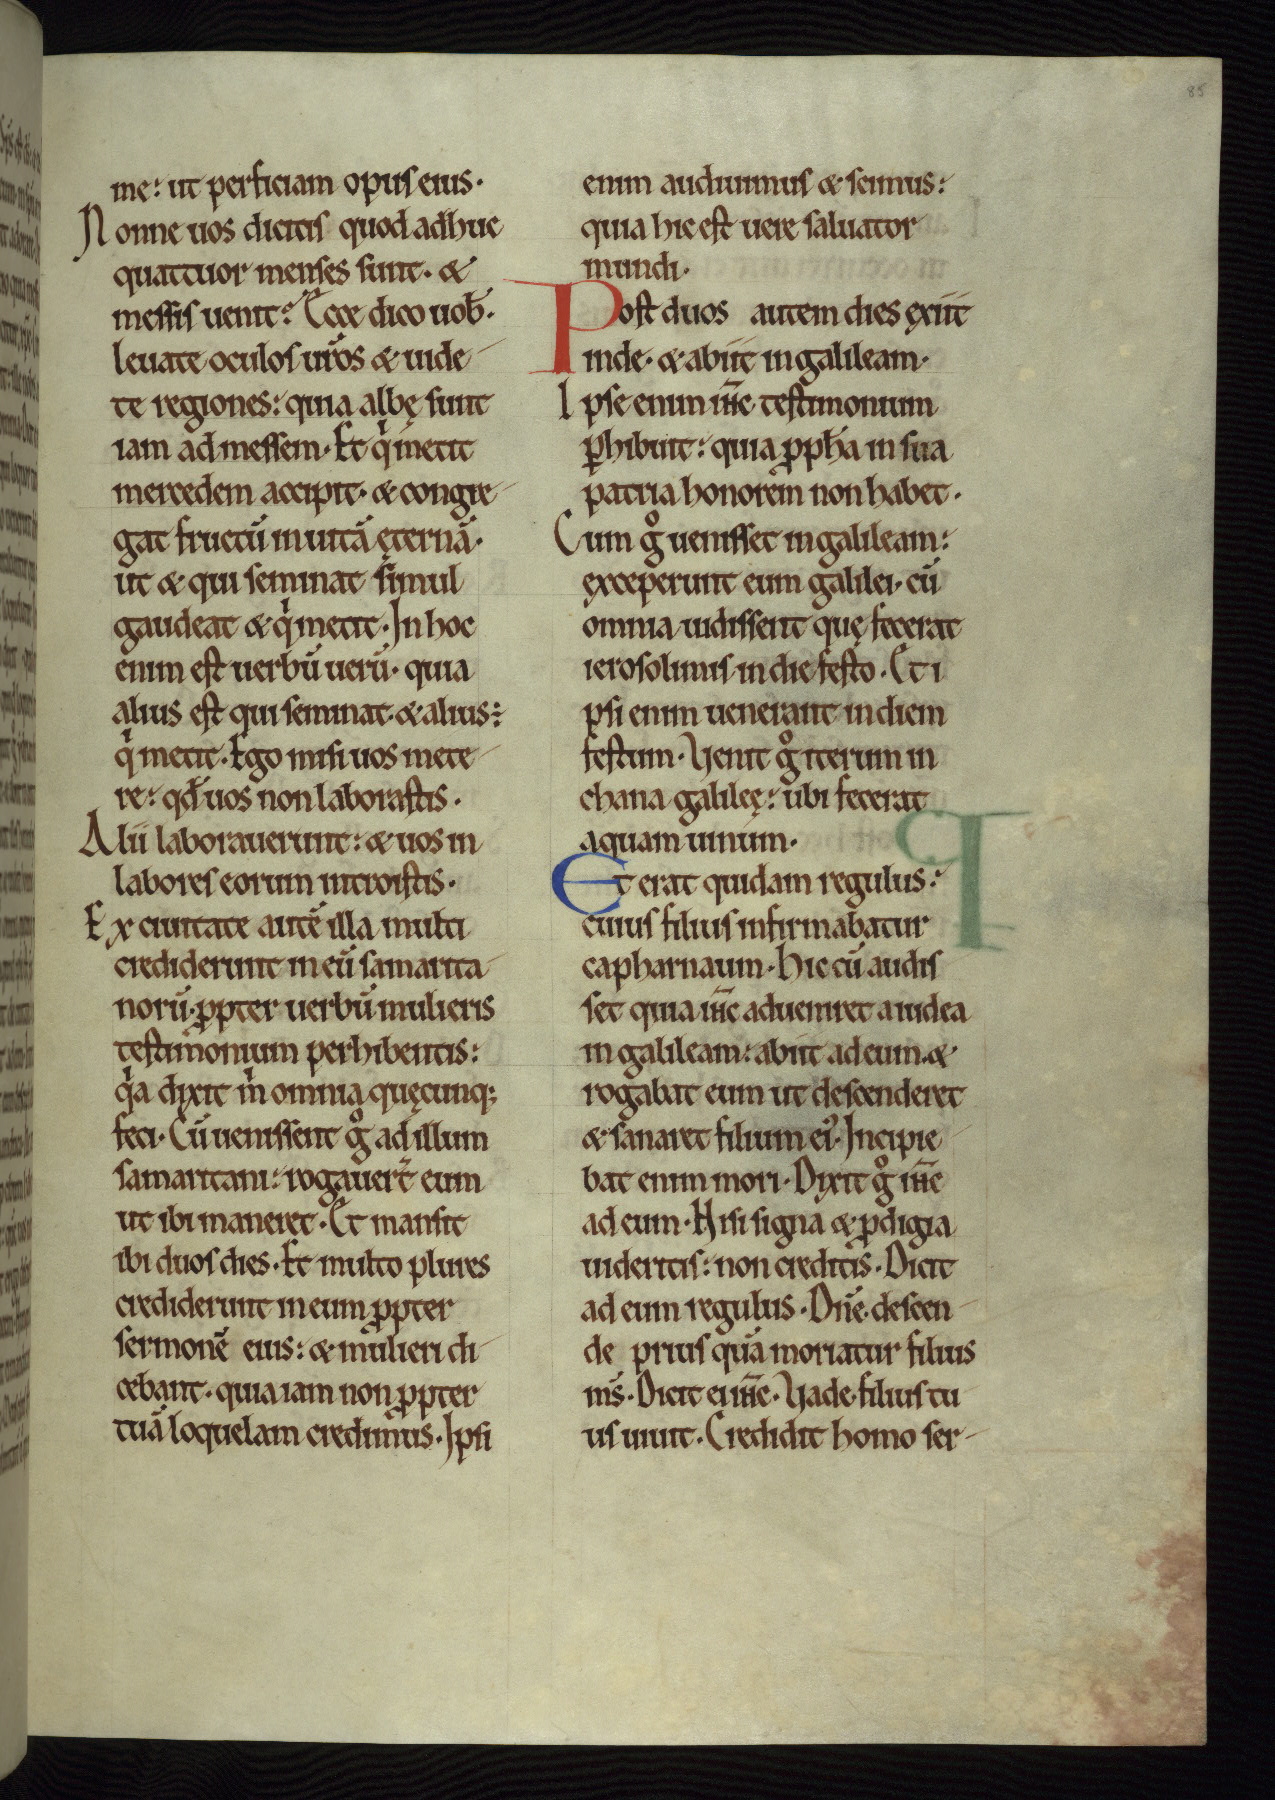 85
me: ut perficiam opus eius.
Nonne uos dicitis quod adhuc
quattuor menses sunt. &
messis uenit? Ecce dico uob̄.
leuate oculos ur̄os & uide
te regiones: quia albę sunt
iam ad messem. Et qͥ metit
mercedem accipit. & congre
gat fructū in uitā ęternā.
ut & qui seminat simul
gaudeat & qͥ metit. In hoc
enim est uerbū uerū. quia
alius est qui seminat. & alius:
qͥ metit. Ego misi uos mete
re: qđ uos non laborastis.
Alii laborauerunt: & uos in
labores eorum introistis.
Ex ciuitate autē illa multi
crediderunt in eū samarita
norū. ꝓpter uerbū mulieris
testimonium perhibentis:
qͥa dixit m̄ omnia quęcunq;
feci. Cū uenissent gͦ ad illum
samaritani: rogauer̄t eum
ut ibi maneret. Et mansit
ibi duos dies. Et multo plures
crediderunt in eum ꝓpter
sermonē eius: & mulieri di
cebant. quia iam non ꝓpter
tuā loquelam credimus. Ipsi
enim audiuimus & scimus:
quia hic est uere saluator
mundi.
Post duos autem dies exiit
inde. & abiit in galileam.
Ipse enim ih̄c testimonium
ꝑhibuit: quia ꝓph̄a in sua
patria honorem non habet.
Cum gͦ uenisset in galileam:
exceperunt eum galilei. cū
omnia uidissent quę fecerat
ierosolimis in die festo. Et i
psi enim uenerant in diem
festum. Venit gͦ iterum in
chana galileę: ubi fecerat
aquam uinum.
Et erat quidam regulus:
cuius filius infirmabatur
capharnaum. Hic cū audis
set quia ih̄c adueniret a iudea
in galileam: abiit ad eum. &
rogabat eum ut descenderet
& sanaret filium ei᾽. Incipie
bat enim mori. Dixit gͦ ih̄c
ad eum. Nisi signa & ꝓdigia
uideritis: non creditis. Dicit
ad eum regulus. Dn̄e. descen
de prius quā moriatur filius
ms̄. Dicit ei ih̄c. Vade. filius tu
us uiuit. Credidit homo ser-